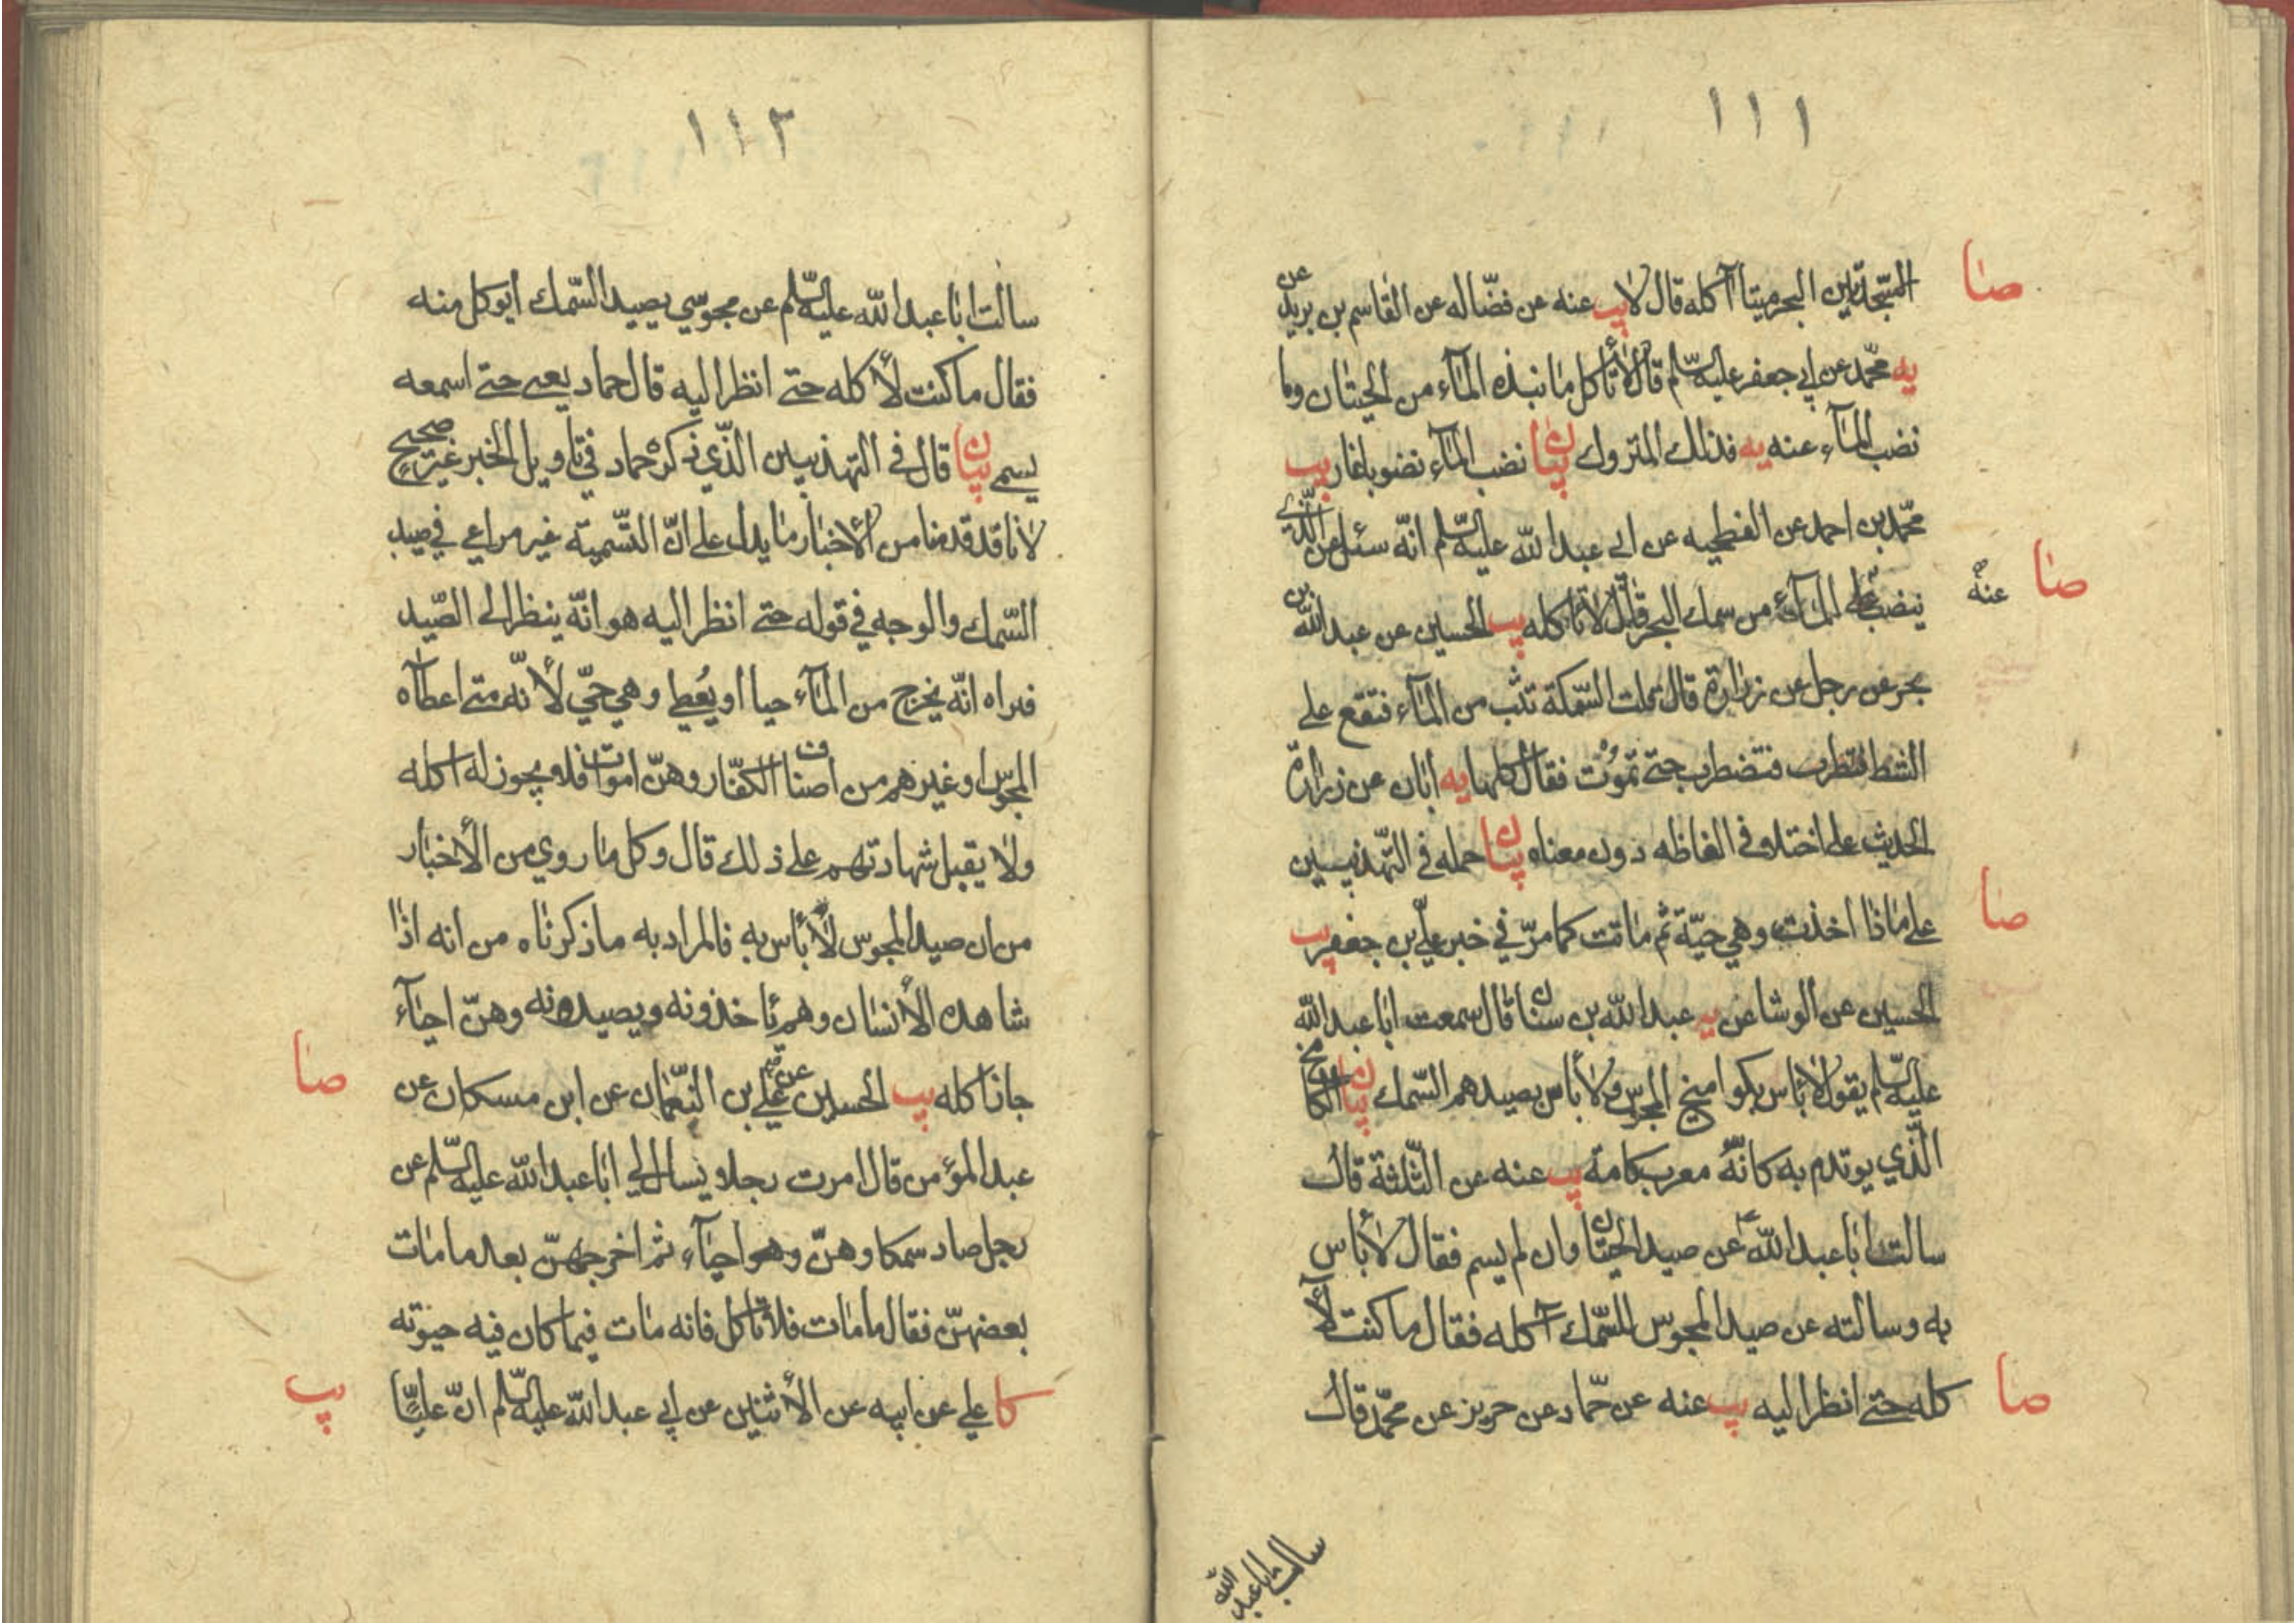 ١١١
صا
المتجدين البحر ميتا آكله قال لا يب عنه عن فضاله عن القاسم بن بريد عن
يه محمد عن ابي جعفر عليه السلم قال لا تأكل ما نبذه المآء من الحيتان وما
نضب المآء عنه يه فذلك المتروك بيان نضب المآء نضوبا غار يب
محمد بن احمد عن الفطحيه عن ابي عبد الله عليه السلم انه سئل عن الذي
صا عنه ينضب المآء من سمك البحر قال لا تأكله يب الحسين عن عبد الله بن
بحر عن رجل عن زرارة قال قلت السمكة تثب من المآء فتقع على
الشط فتضطرب حتى تموت فقال كلها يه ابان عن زرارة
الحديث على اختلاف الفاظه دون معناه بيان حمله في التهذيبين
صا
على ماذا اخذت وهي حيّة ثم ماتت كما مرّ في خبر علي بن جعفر يب
الحسين عن الوشا عن يه عبد الله بن سنان قال سمعت ابا عبد الله
عليه السلم يقول لا بأس بكواميخ المجوس ولا بأس بصيدهم السمك بيان الكامخ
الّذي يوتدم به كانّه معرب كامه يب عنه عن الثلثة قال
سالت ابا عبد الله ع عن صيد الحيتان وان لم يسم فقال لا بأس
به وسالته عن صيد المجوس للسّمك آكله فقال ما كنت لآ
صا
كله حتى انظر اليه يب عنه عن حمّاد عن حريز عن محمّد قال
سالت ابا عبد الله
١١٢
سالت ابا عبد الله عليه السلم عن مجوسي يصيد السّمك ايوكل منه
فقال ما كنت لأكله حتى انظر اليه قال حماد يعني حتى اسمعه
يسمي بيان قال في التهذيبين الّذي ذكره حماد في تأويل الخبر غير صحيح
لانا قد قدمنا من الأخبار ما يدل على انّ التّسمية غير مراعي في صيد
السّمك والوجه في قوله حتى انظر اليه هو انّه ينظر الى الصّيد
فيراه انّه يخرج من المآء حيا او يُعطي وهي حيّ لأنّه متى اعطآه
المجوس او غيرهم من اصناف الكفّار وهنّ اموات فلا يجوز له اكله
ولا يقبل شهادتهم على ذلك قال وكل ما روي من الأخبار
من ان صيد المجوس لا بأس به فالمراد به ما ذكرناه من انه اذا
شاهده الأنسان وهم يأخذونه ويصيدونه وهنّ احيآء
صا
جاز اكله يب الحسين عن علي بن النّعمان عن ابن مسكان عن
عبد المؤمن قال امرت رجلا يسال لي ابا عبد الله عليه السلم عن
رجل صاد سمكا وهنّ وهو احيآء ثم اخرجهنّ بعد ما مات
بعضهنّ فقال ما مات فلا تأكل فانه مات فيما كان فيه حيوته
يب
كا علي عن ابيه عن الأثنين عن ابي عبد الله عليه السلم انّ عليّا